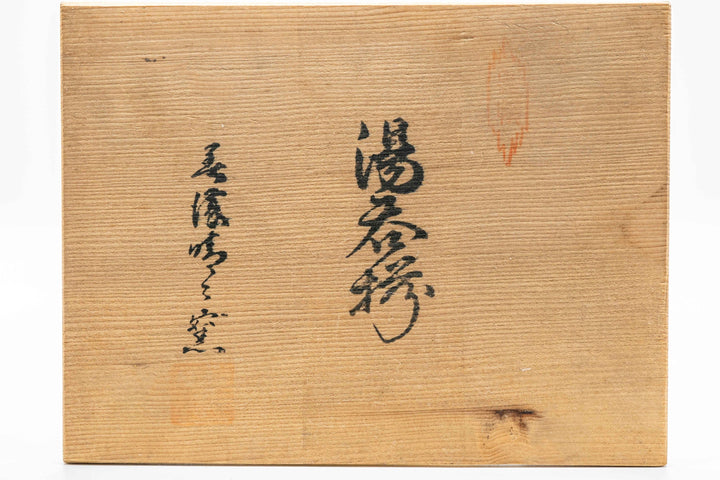 湯呑揃
美濃晴々窯